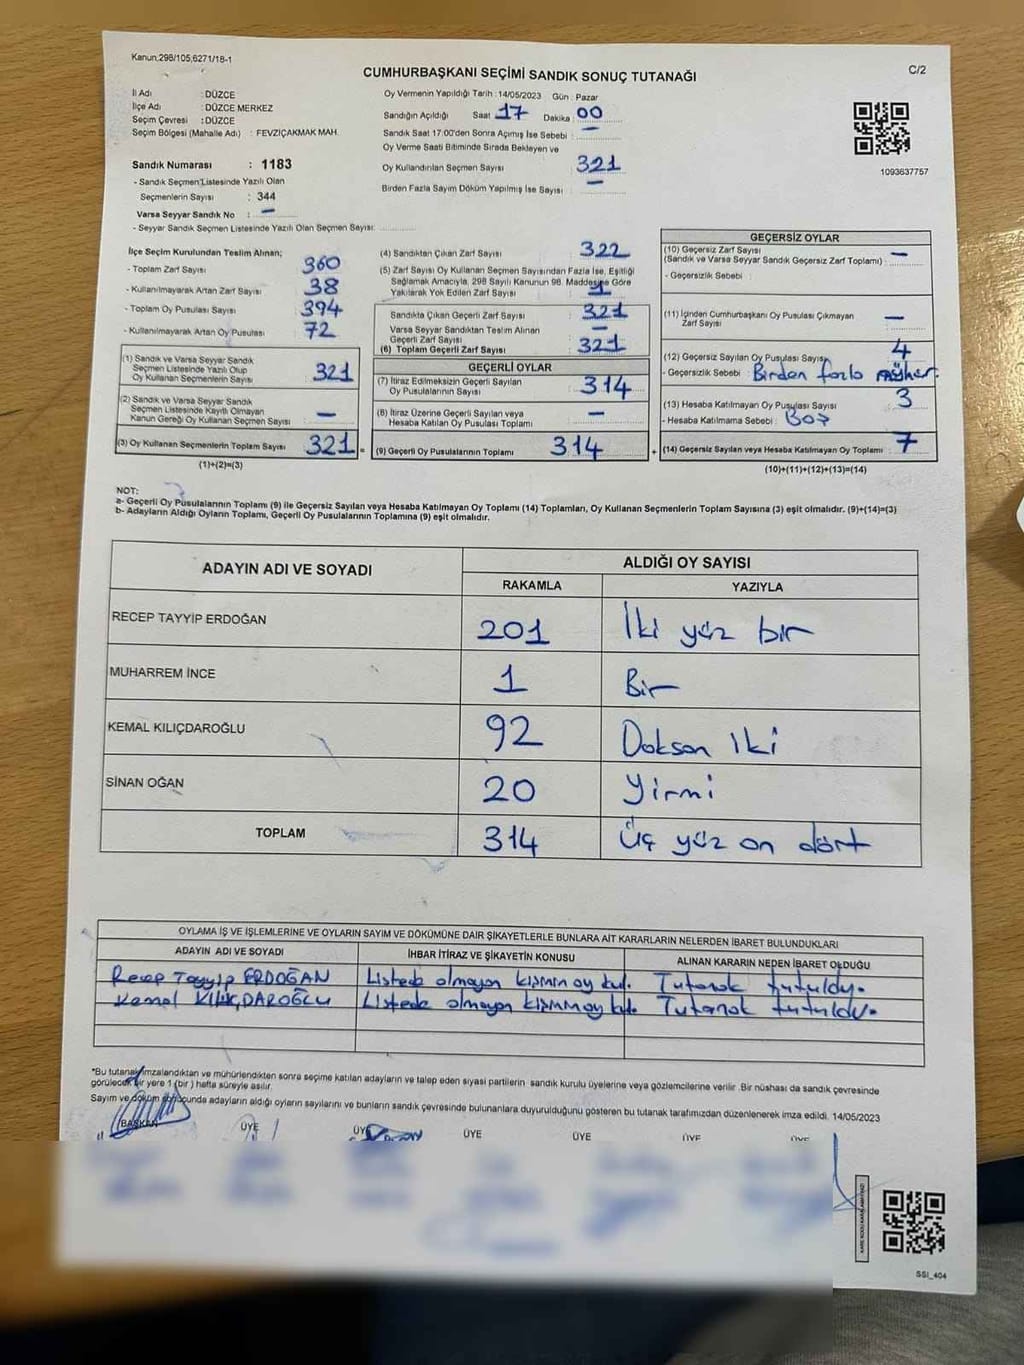 Kanun;298/105,6271/18-1
C/2
CUMHURBAŞKANI SEÇİMİ SANDIK SONUÇ TUTANAĞI
İl Adı : DÜZCE
İlçe Adı : DÜZCE MERKEZ
Seçim Çevresi : DÜZCE
Seçim Bölgesi (Mahalle Adı) : FEVZİÇAKMAK MAH.
Oy Vermenin Yapıldığı Tarih : 14/05/2023 Gün : Pazar
Sandığın Açıldığı Saat 17 Dakika : 00
Sandık Saat 17:00'den Sonra Açımış İse Sebebi : —
Oy Verme Saati Bitiminde Sırada Bekleyen ve
Oy Kullandırılan Seçmen Sayısı : 321
Birden Fazla Sayım Döküm Yapılmış İse Sayısı : —
1093637757
Sandık Numarası : 1183
- Sandık Seçmen Listesinde Yazılı Olan
Seçmenlerin Sayısı : 344
Varsa Seyyar Sandık No : —
- Seyyar Sandık Seçmen Listesinde Yazılı Olan Seçmen Sayısı:
İlçe Seçim Kurulundan Teslim Alınan;
- Toplam Zarf Sayısı : 360
- Kullanılmayarak Artan Zarf Sayısı : 38
- Toplam Oy Pusulası Sayısı : 394
- Kullanılmayarak Artan Oy Pusulası : 72
(1) Sandık ve Varsa Seyyar Sandık
Seçmen Listesinde Yazılı Olup
Oy Kullanan Seçmenlerin Sayısı : 321
(2) Sandık ve Varsa Seyyar Sandık
Seçmen Listesinde Kayıtlı Olmayan
Kanun Gereği Oy Kullanan Seçmen Sayısı : —
(3) Oy Kullanan Seçmenlerin Toplam Sayısı : 321 =
(1)+(2)=(3)
(4) Sandıktan Çıkan Zarf Sayısı : 322
(5) Zarf Sayısı Oy Kullanan Seçmen Sayısından Fazla İse, Eşitliği
Sağlamak Amacıyla, 298 Sayılı Kanunun 98. Maddesine Göre
Yakılarak Yok Edilen Zarf Sayısı : 1
Sandıkta Çıkan Geçerli Zarf Sayısı : 321
Varsa Seyyar Sandıktan Teslim Alınan
Geçerli Zarf Sayısı : —
(6) Toplam Geçerli Zarf Sayısı : 321
GEÇERLİ OYLAR
(7) İtiraz Edilmeksizin Geçerli Sayılan
Oy Pusulalarının Sayısı : 314
(8) İtiraz Üzerine Geçerli Sayılan veya
Hesaba Katılan Oy Pusulası Toplamı : —
(9) Geçerli Oy Pusulalarının Toplamı 314 +
GEÇERSİZ OYLAR
(10) Geçersiz Zarf Sayısı
(Sandık ve Varsa Seyyar Sandık Geçersiz Zarf Toplamı) : —
- Geçersizlik Sebebi :
(11) İçinden Cumhurbaşkanı Oy Pusulası Çıkmayan
Zarf Sayısı : —
(12) Geçersiz Sayılan Oy Pusulası Sayısı : 4
- Geçersizlik Sebebi : Birden fazla
(13) Hesaba Katılmayan Oy Pusulası Sayısı : 3
- Hesaba Katılmama Sebebi : Boş
(14) Geçersiz Sayılan veya Hesaba Katılmayan Oy Toplamı : 7
(10)+(11)+(12)+(13)=(14)
NOT:
a- Geçerli Oy Pusulalarının Toplamı (9) ile Geçersiz Sayılan veya Hesaba Katılmayan Oy Toplamı (14) Toplamları, Oy Kullanan Seçmenlerin Toplam Sayısına (3) eşit olmalıdır. (9)+(14)=(3)
b- Adayların Aldığı Oyların Toplamı, Geçerli Oy Pusulalarının Toplamına (9) eşit olmalıdır.
ADAYIN ADI VE SOYADI
ALDIĞI OY SAYISI
RAKAMLA YAZIYLA
RECEP TAYYİP ERDOĞAN 201 İki yüz bir
MUHARREM İNCE 1 Bir
KEMAL KILIÇDAROĞLU 92 Doksan iki
SİNAN OĞAN 20 Yirmi
TOPLAM 314 Üç yüz on dört
OYLAMA İŞ VE İŞLEMLERİNE VE OYLARIN SAYIM VE DÖKÜMÜNE DAİR ŞİKAYETLERLE BUNLARA AİT KARARLARIN NELERDEN İBARET BULUNDUKLARI
ADAYIN ADI VE SOYADI İHBAR İTİRAZ VE ŞİKAYETİN KONUSU ALINAN KARARIN NEDEN İBARET OLDUĞU
Recep Tayyip ERDOĞAN Listede olmayan kişinin oy kul. Tutanak tutuldu.
Kemal KILIÇDAROĞLU Listede olmayan kişinin oy kul. Tutanak tutuldu.
*Bu tutanak imzalandıktan ve mühürlendikten sonra seçime katılan adayların ve talep eden siyasi partilerin sandık kurulu üyelerine veya gözlemcilerine verilir .Bir nüshası da sandık çevresinde
görülecek bir yere 1 (bir) hafta süreyle asılır.
Sayım ve döküm sonucunda adayların aldığı oyların sayılarını ve bunların sandık çevresinde bulunanlara duyurulduğunu gösteren bu tutanak tarafımızdan düzenlenerek imza edildi. 14/05/2023
BAŞKAN ÜYE ÜYE ÜYE ÜYE ÜYE ÜYE
SSI_404